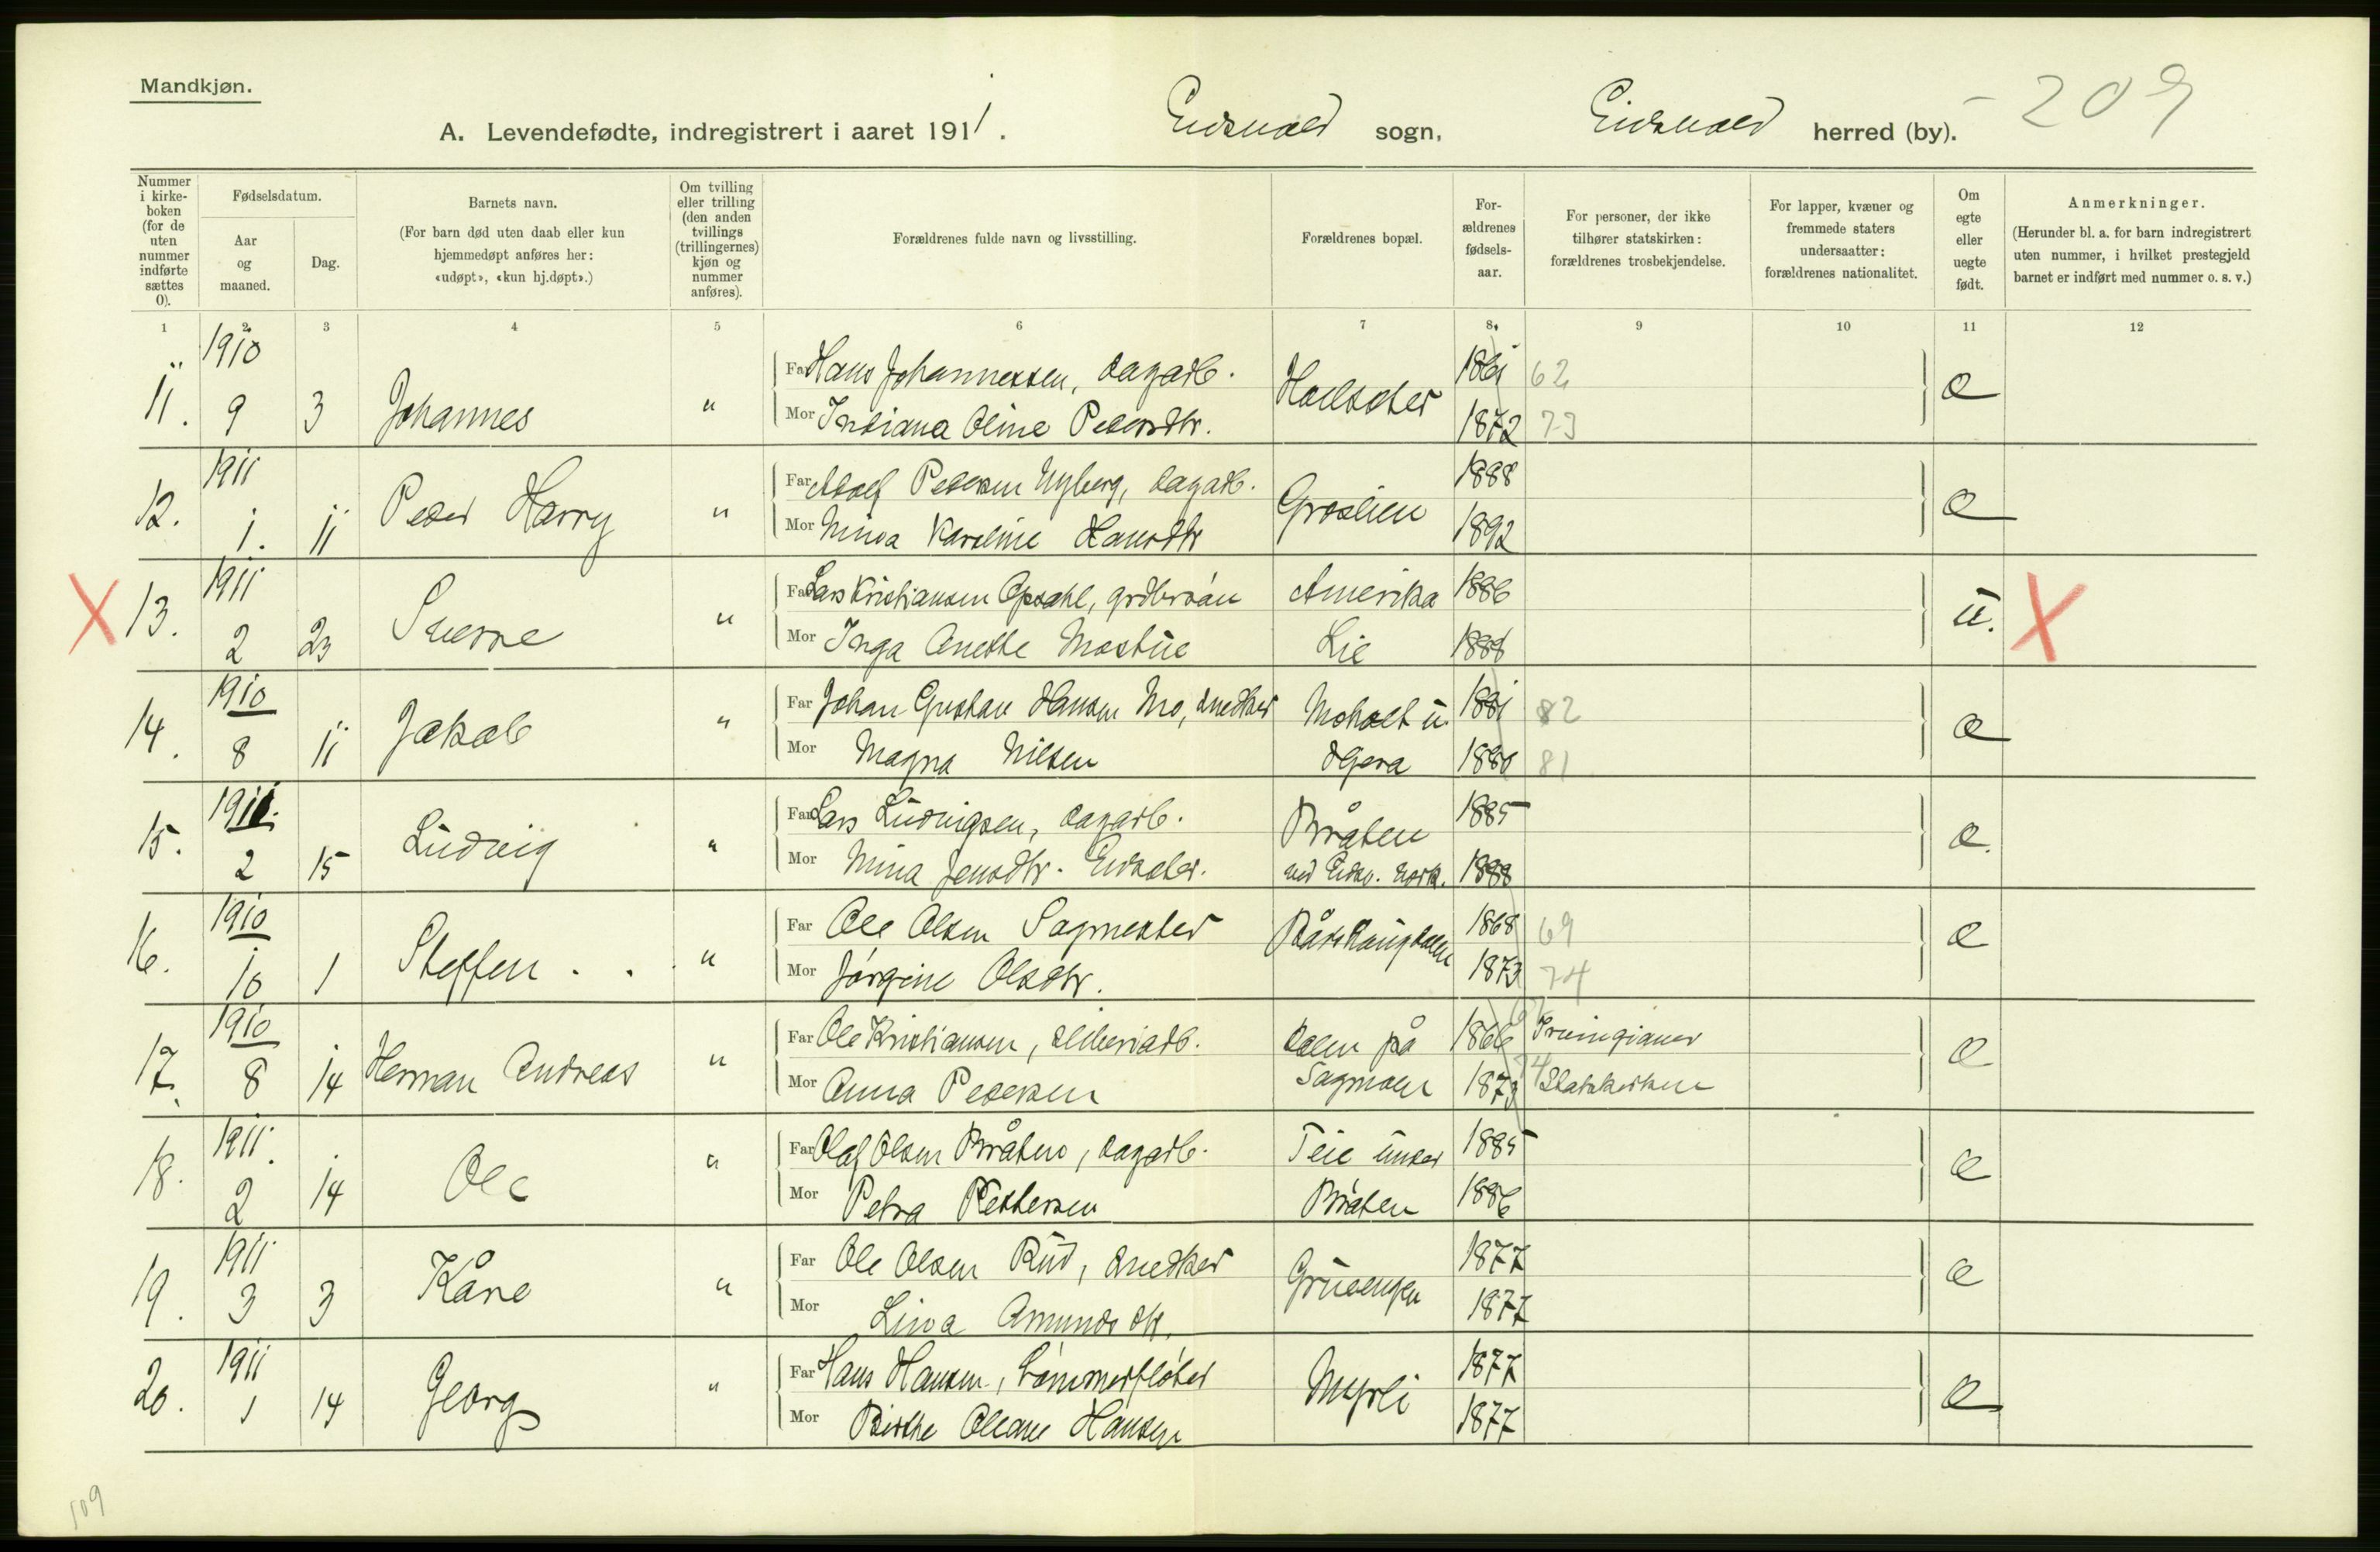 Mandkjøn.
A. Levendefødte, indregistrert i aaret 1911. Eidsvold sogn, Eidsvold herred (by). 209
Nummer i kirkeboken (for de uten nummer indførte sættes 0).
Fødselsdatum.
Aar og maaned.
Dag.
Barnets navn.
(For barn død uten daab eller kun hjemmedøpt anføres her: «udøpt», «kun hj.døpt».)
Om tvilling eller trilling (den anden tvillings (trillingernes) kjøn og nummer anføres).
Forældrenes fulde navn og livsstilling.
Forældrenes bopæl.
Forældrenes fødselsaar.
For personer, der ikke tilhører statskirken: forældrenes trosbekjendelse.
For lapper, kvæner og fremmede staters undersaatter: forældrenes nationalitet.
Om egte eller uegte født.
Anmerkninger.
(Herunder bl. a. for barn indregistrert uten nummer, i hvilket prestegjeld barnet er indført med nummer o. s. v.)
1 2 3 4 5 6 7 8 9 10 11 12
11. 1910 9 3 Johannes " Far Hans Johannessen, dagarb. 1861 62 e
Mor Indiana Oline Pedersdtr. 1872 73
12. 1911 1. 11 Peder Harry " Far Adolf Pedersen Nyberg, dagarb. 1888 e
Mor Karoline Hansdtr 1892
X 13. 1911 2 23 Sverre " Far Lars Kristiansen Opsahl, Amerika 1886 u. X
Mor Inga Anette Mostue Lie
14. 1910 8 11 Jakob " Far Johan Gustav Hansen Mo, snedker Moholt u. 1881 82 e
Mor Magna Nilsen 1880 81
15. 1911. 2 15 Ludvig " Far Lars Ludvigsen, dagarb. Bråten 1885 e.
Mor Mina Jensdtr. ved Eidsv. verk. 1888
16. 1910 10 1 Steffen " Far Ole Olsen Sagmester 1868 69 e
Mor Jørgine Olsdtr. 1873 74
17. 1910 8 14 Herman Andreas " Far Ole Kristiansen, sliberiarb. Dalen på 1866 67 Irvingianer e
Mor Anna Pedersen Sagmoen 1873 74 Statskirken
18. 1911. 2 14 Ole " Far Olaf Olsen Bråten, dagarb. Teie under 1885 e
Mor Petra Pettersen Bråten 1886
19. 1911 3 3 Kåre " Far Ole Olsen Rud, snedker Grueengen 1877 e
Mor Lina Amundsdtr. 1877
20. 1911 1 14 Georg " Far Hans Hansen, tømmerfløter Myrli 1877 e
Mor Birthe Oleane Hansen 1877
109